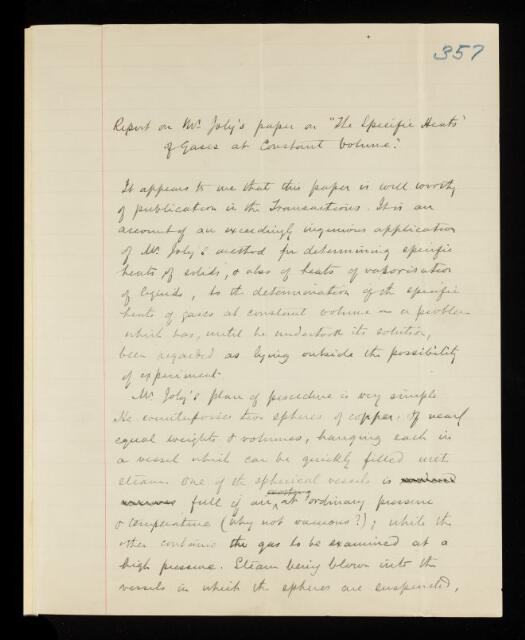 357
Report on Mr. Joly's paper on "The Specific Heats
of Gases at Constant Volume."
It appears to me that this paper is well worthy
of publication in the Transactions. It is an
account of an exceedingly ingenious application
of Mr. Joly's method for determining specific
heats of solids, & also of heats of vaporisation
of liquids, to the determination of the specific
heats of gases at constant volume – a problem
which has, until he undertook its solution,
been regarded as lying outside the possibility
of experiment.
Mr. Joly's plan of procedure is very simple.
He counterpoises two spheres of copper, of nearly
equal weights & volumes, hanging each in
a vessel which can be quickly filled with
steam. One of the spherical vessels is
full of air, at ordinary pressure
& temperature (why not vacuous?); while the
other contains the gas to be examined at a
high pressure. Steam being blown into the
vessels in which the spheres are suspended,